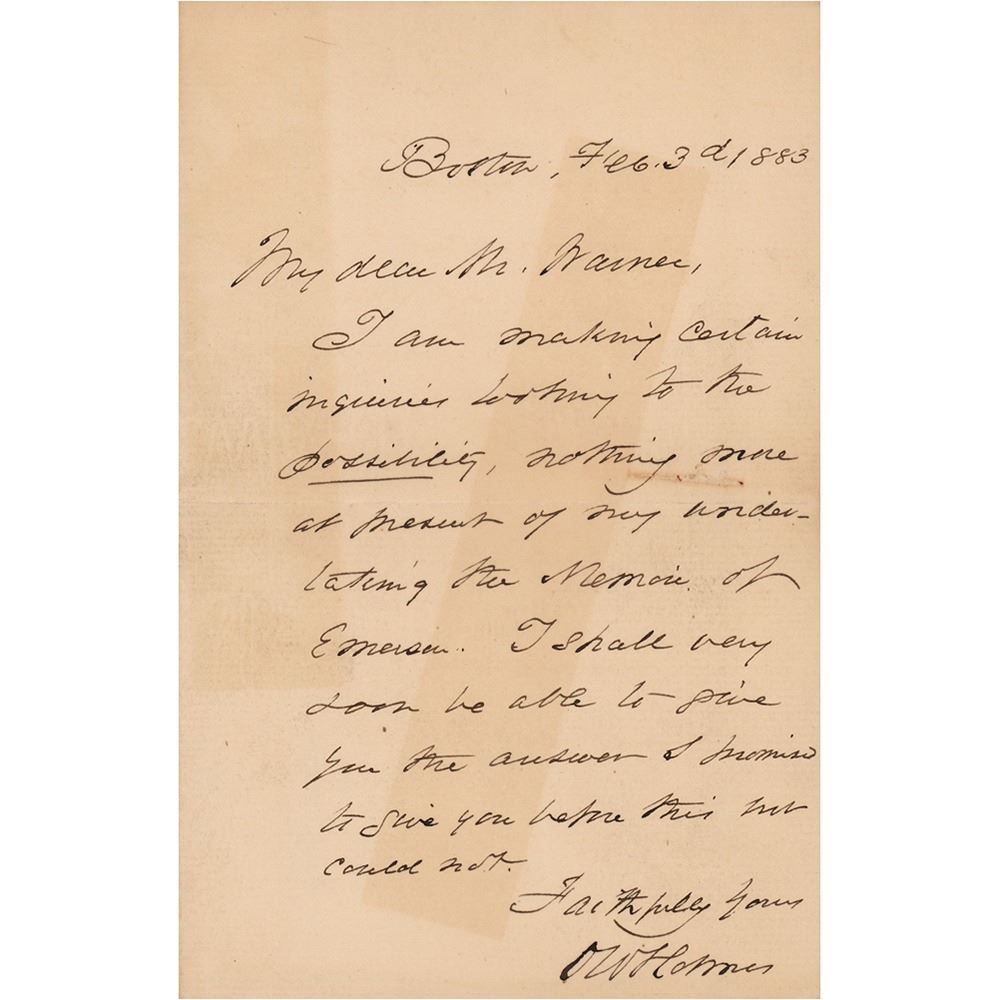 Boston, Feb. 3d 1883
My dear Mr. Warner,
I am making certain
inquiries looking to the
possibility, nothing more
at present of my under-
taking the Memoir of
Emerson. I shall very
soon be able to give
you the answer I promised
to give you before this but
could not.
Faithfully yours
O W Holmes